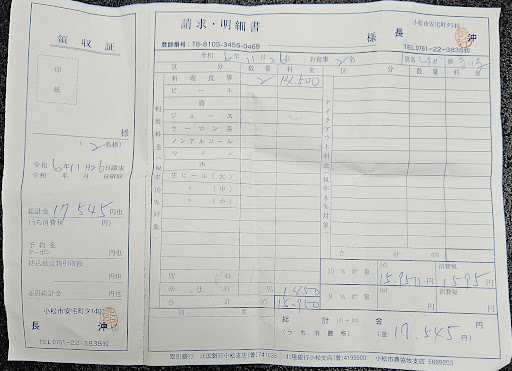 領収証
印紙
様
(2名様)
令和 6年11月26日請求
令和 年 月 日領収
総計金 17,545 円也
(うち消費税 円)
予約金
クーポン 円也
円也
差引総計金 円也
小松市安宅町タ140
長沖
TEL.0761-22-3838㈹
請求・明細書
様
登録番号:T8-8105-3456-0469
小松市安宅町タ140
長沖
TEL.0761-22-3838㈹
令和 6年11月26日 お食事 2名
室名 係
区分 数量 料金 区分 数量 料金
料理食事 2 14,500
ビール
酒
ジュース
ウーロン茶
ノンアルコール
ワイン
水
生ビール(大)
〃 (中)
〃 (小)
利用料金(税率10%対象)
テイクアウト料金(税率8%対象)
合計
席料
奉仕料 1,450
合計 15,950
10%対象 15,950円 消費税 1,595
8%対象 円 消費税
税項
総計 金 円
(うち消費税) (金 17,545 円)
取引銀行 北国銀行小松支店(普)741635 北陸銀行小松支店(普)4199900 小松市農協板支店 5669203